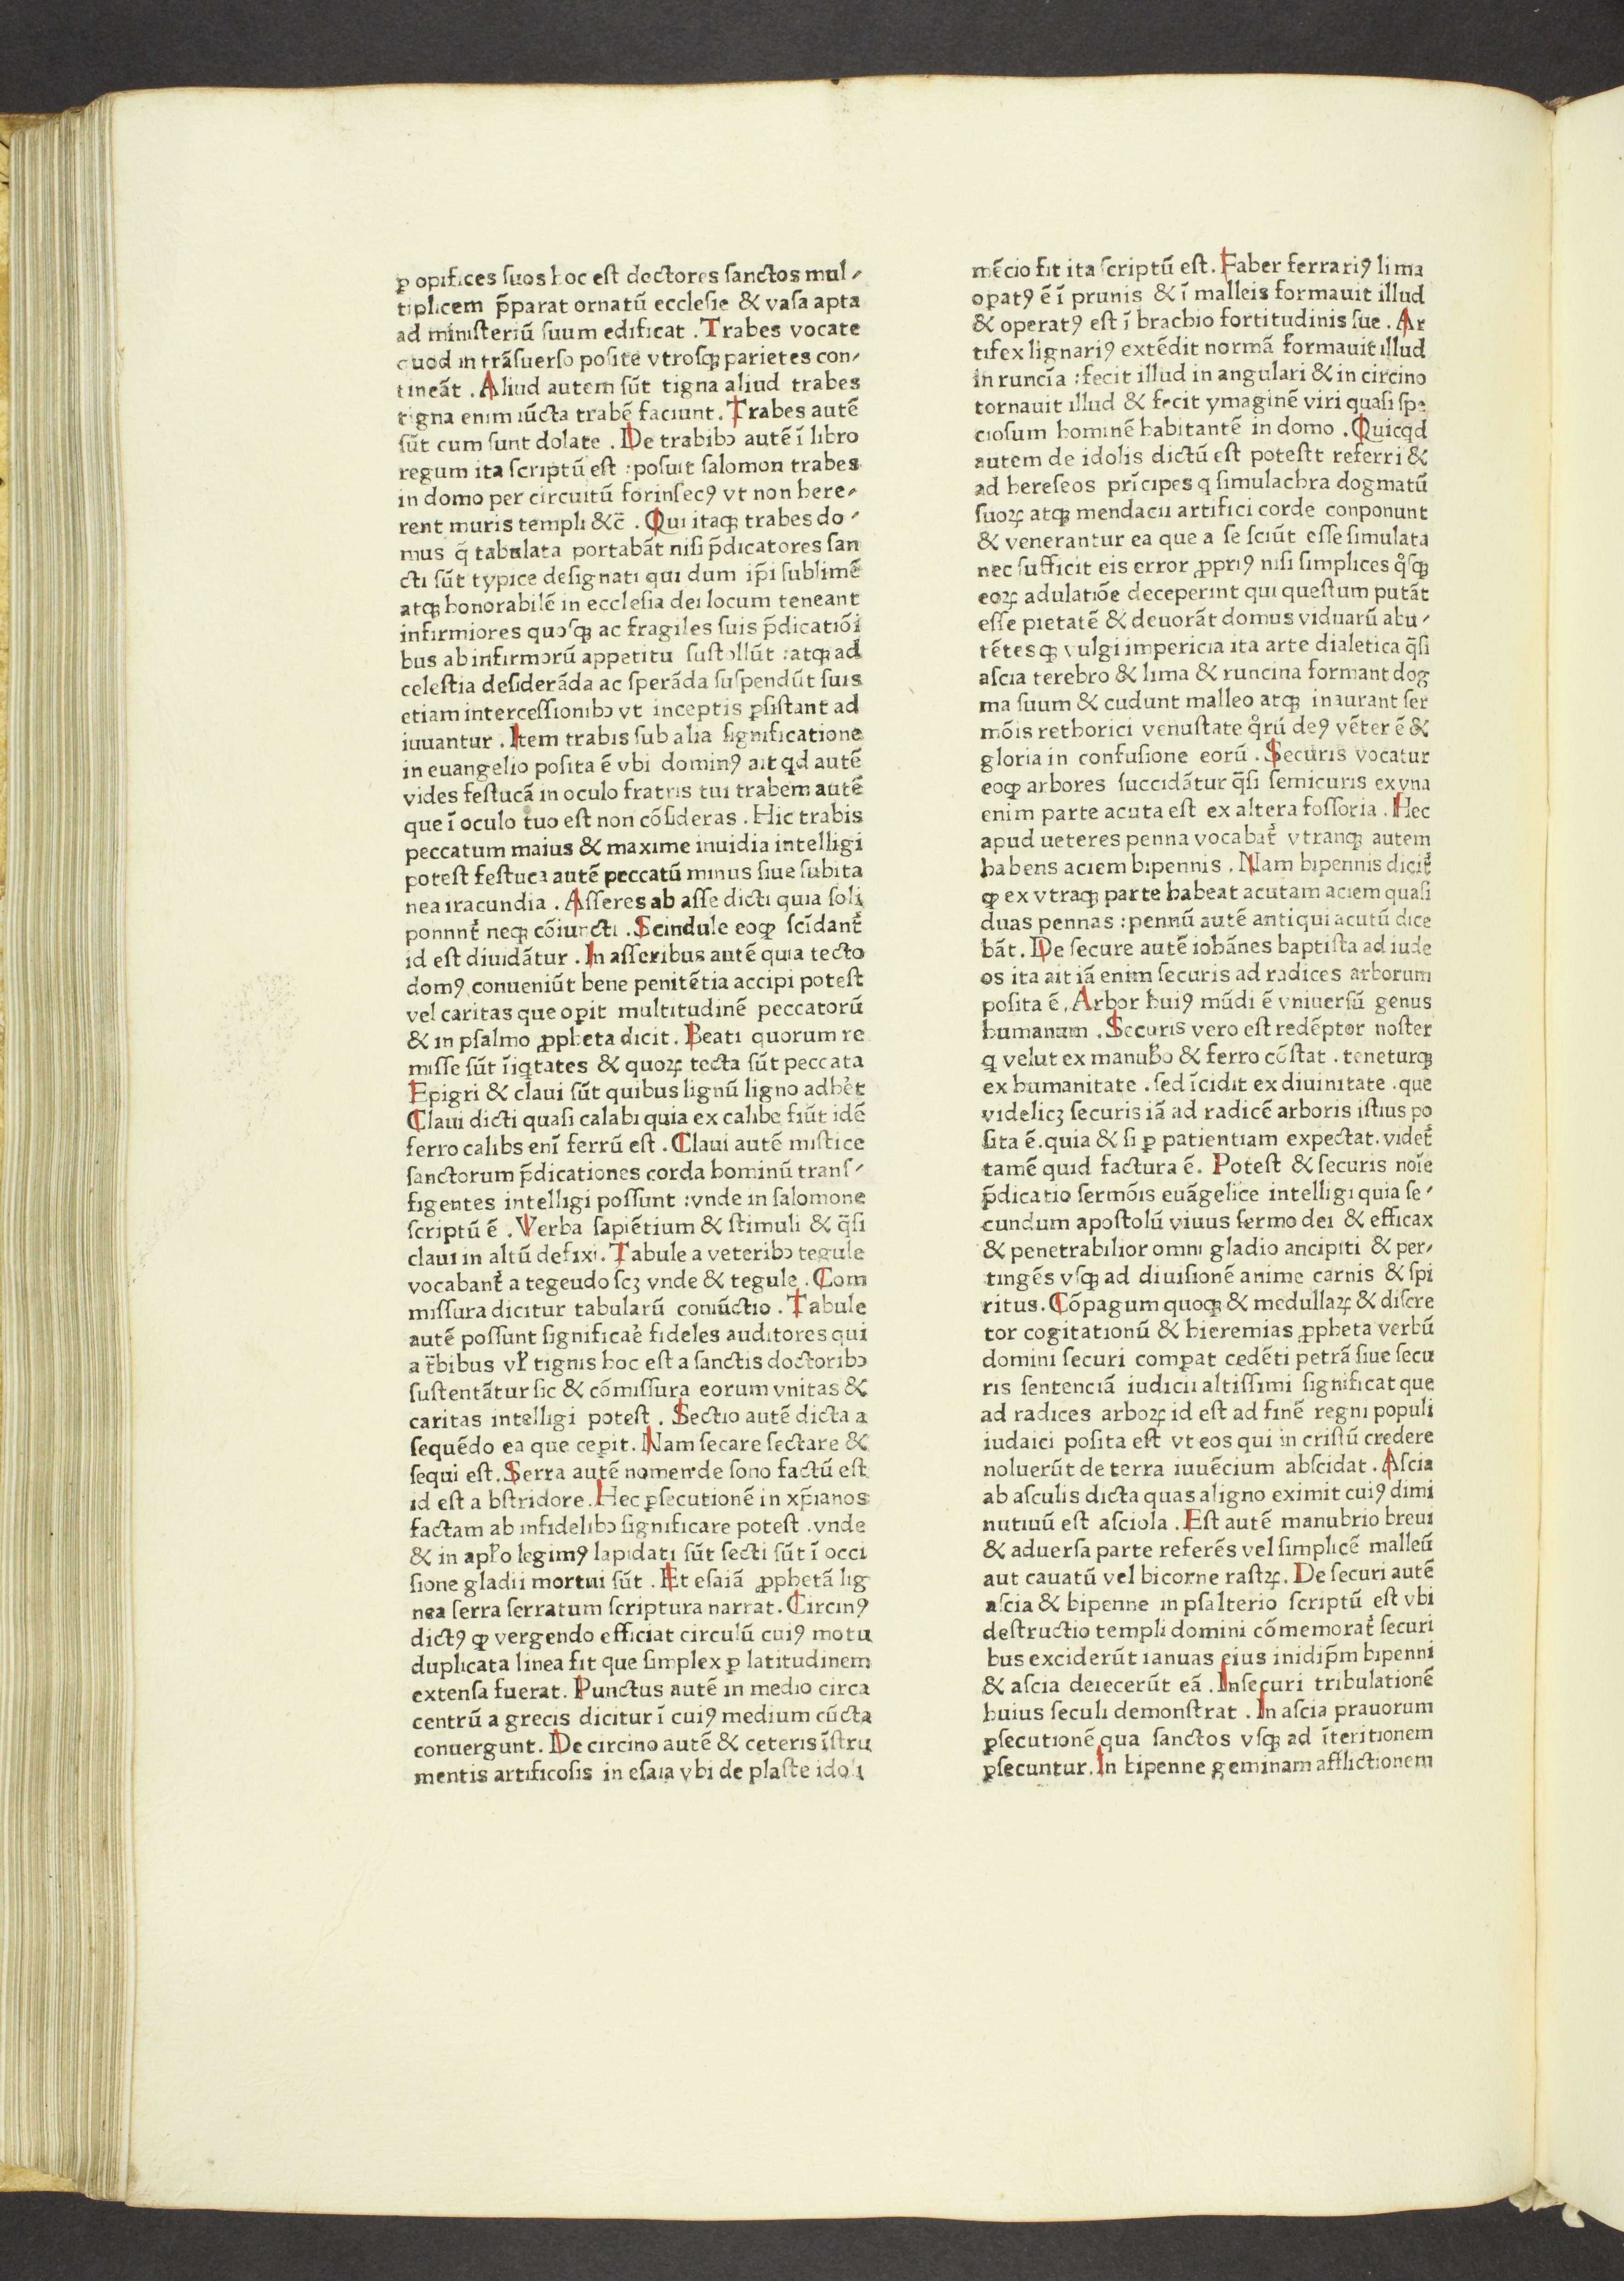 ꝑ opifices ſuos hoc eſt doctores ſanctos mul⸗
tiplicem p̄parat ornatū eccleſie & vaſa apta
ad miniſteriū ſuum edificat . Trabes vocate
quod in trāſuerſo poſite vtroſqꝫ parietes con⸗
tineāt . Aliud autem ſūt tigna aliud trabes
tigna enim iūcta trabē faciunt . Trabes autē
ſūt cum ſunt dolate . De trabibꝫ autē ī libro
regum ita ſcriptū eſt : poſuit ſalomon trabes
in domo per circuitū forinſecꝰ vt non here⸗
rent muris templi &c̄ . Qui itaqꝫ trabes do⸗
mus q̄ tabulata portabāt niſi p̄dicatores ſan
cti ſūt typice deſignati qui dum ip̄i ſublimē
atqꝫ honorabilē in eccleſia dei locum teneant
infirmiores quoſqꝫ ac fragiles ſuis p̄dicatiōi
bus ab infirmorū appetitu ſuſtollūt : atqꝫ ad
celeſtia deſiderāda ac ſperāda ſuſpendūt ſuis
etiam interceſſionibꝫ vt inceptis ꝑſiſtant ad
iuuantur . Item trabis ſub alia ſignificatione
in euangelio poſita ē vbi dominꝰ ait qd autē
vides feſtucā in oculo fratris tui trabem autē
que ī oculo tuo eſt non cōſideras . Hic trabis
peccatum maius & maxime inuidia intelligi
poteſt feſtuca autē peccatū minus ſiue ſubita
nea iracundia . Aſſeres ab aſſe dicti quia ſoli
ponnnt᷑ neqꝫ cōiuncti . Scindule eoqꝫ ſcīdant᷑
id eſt diuidātur . In aſſeribus autē quia tecto
domꝰ conueniūt bene penitētia accipi poteſt
vel caritas que oꝑit multitudinē peccatorū
& in pſalmo ꝓpheta dicit . Beati quorum re
miſſe ſūt īiqtates & quoꝝ tecta ſūt peccata
Epigri & claui ſūt quibus lignū ligno adhe᷑t
Claui dicti quaſi calabi quia ex calibe fiūt idē
ferro calibs enī ferrū eſt . Claui autē miſtice
ſanctorum p̄dicationes corda hominū tranſ⸗
figentes intelligi poſſunt : vnde in ſalomone
ſcriptū ē . Verba ſapiētium & ſtimuli & q̄ſi
claui in altū defixi . Tabule a veteribꝫ tegule
vocabant᷑ a tegeudo ſcꝫ vnde & tegule . Com
miſſura dicitur tabularū coniūctio . Tabule
autē poſſunt ſignificae᷑ fideles auditores qui
a t̄bibus vl̓ tignis hoc eſt a ſanctis doctoribꝫ
ſuſtentātur ſic & cōmiſſura eorum vnitas &
caritas intelligi poteſt . Sectio autē dicta a
ſequēdo ea que ceꝑit . Nam ſecare ſectare &
ſequi eſt . Serra autē nomen de ſono factū eſt
id eſt a bſtridore . Hec ꝑſecutionē in xp̄ianos
factam ab infidelibꝫ ſignificare poteſt . vnde
& in apl̓o legimꝰ lapidati ſūt ſecti ſūt ī occi
ſione gladii mortui ſūt . Et eſaiā ꝓphetā lig
nea ſerra ſerratum ſcriptura narrat . Circinꝰ
dictꝰ ꝙ vergendo efficiat circulū cuiꝰ motu
duplicata linea fit que ſimplex ꝑ latitudinem
extenſa fuerat . Punctus autē in medio circa
centrū a grecis dicitur ī cuiꝰ medium cūcta
conuergunt . De circino autē & ceteris īſtru
mentis artificoſis in eſaia vbi de plaſte idoli
mēcio fit ita ſcriptū eſt . Faber ferrariꝰ lima
oꝑatꝰ ē ī prunis & ī malleis formauit illud
& operatꝰ eſt ī brachio fortitudinis ſue . Ar
tifex lignariꝰ extēdit normā formauit illud
in runcīa : fecit illud in angulari & in circino
tornauit illud & fecit ymaginē viri quaſi ſpe
cioſum hominē habitantē in domo . Quicqd
autem de idolis dictū eſt poteſtt referri &
ad hereſeos prīcipes q ſimulachra dogmatū
ſuoꝝ atqꝫ mendacii artifici corde conponunt
& venerantur ea que a ſe ſciūt eſſe ſimulata
nec ſufficit eis error ꝓpriꝰ niſi ſimplices qͦſqꝫ
eoꝝ adulatiōe deceperint qui queſtum putāt
eſſe pietatē & deuorāt domus viduarū abu⸗
tētesqꝫ vulgi impericia ita arte dialetica q̄ſi
aſcia terebro & lima & runcina formant dog
ma ſuum & cudunt malleo atqꝫ inaurant ſer
mōis rethorici venuſtate qͦrū deꝰ vēter ē &
gloria in confuſione eorū . Securis vocatur
eoꝙ arbores ſuccidātur q̄ſi ſemicuris ex vna
enim parte acuta eſt ex altera foſſoria . Hec
apud ueteres penna vocabat᷑ vtranqꝫ autem
habens aciem bipennis . Nam bipennis dicit᷑
ꝙ ex vtraqꝫ parte habeat acutam aciem quaſi
duas pennas : pennū autē antiqui acutū dice
bāt . De ſecure autē iohānes baptiſta ad iude
os ita ait iā enim ſecuris ad radices arborum
poſita ē . Arbor huiꝰ mūdi ē vniuerſū genus
humanum . Securis vero eſt redēptor noſter
q velut ex manub̓o & ferro cōſtat . teneturqꝫ
ex humanitate . ſed īcidit ex diuinitate . que
videlicꝫ ſecuris iā ad radicē arboris iſtius po
ſita ē . quia & ſi ꝑ patientiam expectat . videt᷑
tamē quid factura ē . Poteſt & ſecuris noīe
p̄dicatio ſermōis euāgelice intelligi quia ſe⸗
cundum apoſtolū viuus ſermo dei & efficax
& penetrabilior omni gladio ancipiti & per⸗
tingēs vſqꝫ ad diuiſionē anime carnis & ſpi
ritus . Cōpagum quoqꝫ & medullaꝝ & diſcre
tor cogitationū & hieremias ꝓpheta verbū
domini ſecuri comꝑat cedēti petrā ſiue ſecu
ris ſentenciā iudicii altiſſimi ſignificat que
ad radices arboꝝ id eſt ad finē regni populi
iudaici poſita eſt vt eos qui in criſtū credere
noluerūt de terra iuuēcium abſcidat . Aſcia
ab aſculis dicta quas a ligno eximit cuiꝰ dimi
nutiuū eſt aſciola . Eſt autē manubrio breui
& aduerſa parte referēs vel ſimplicē malleū
aut cauatū vel bicorne raſtꝝ . De ſecuri autē
aſcia & bipenne in pſalterio ſcriptū eſt vbi
deſtructio templi domini cōmemorat᷑ ſecuri
bus exciderūt ianuas eius inidip̄m bipenni
& aſcia deiecerūt eā . Inſecuri tribulationē
huius ſeculi demonſtrat . In aſcia prauorum
ꝑſecutionē qua ſanctos vſqꝫ ad īteritionem
ꝑſecuntur . In bipenne geminam afflictionem